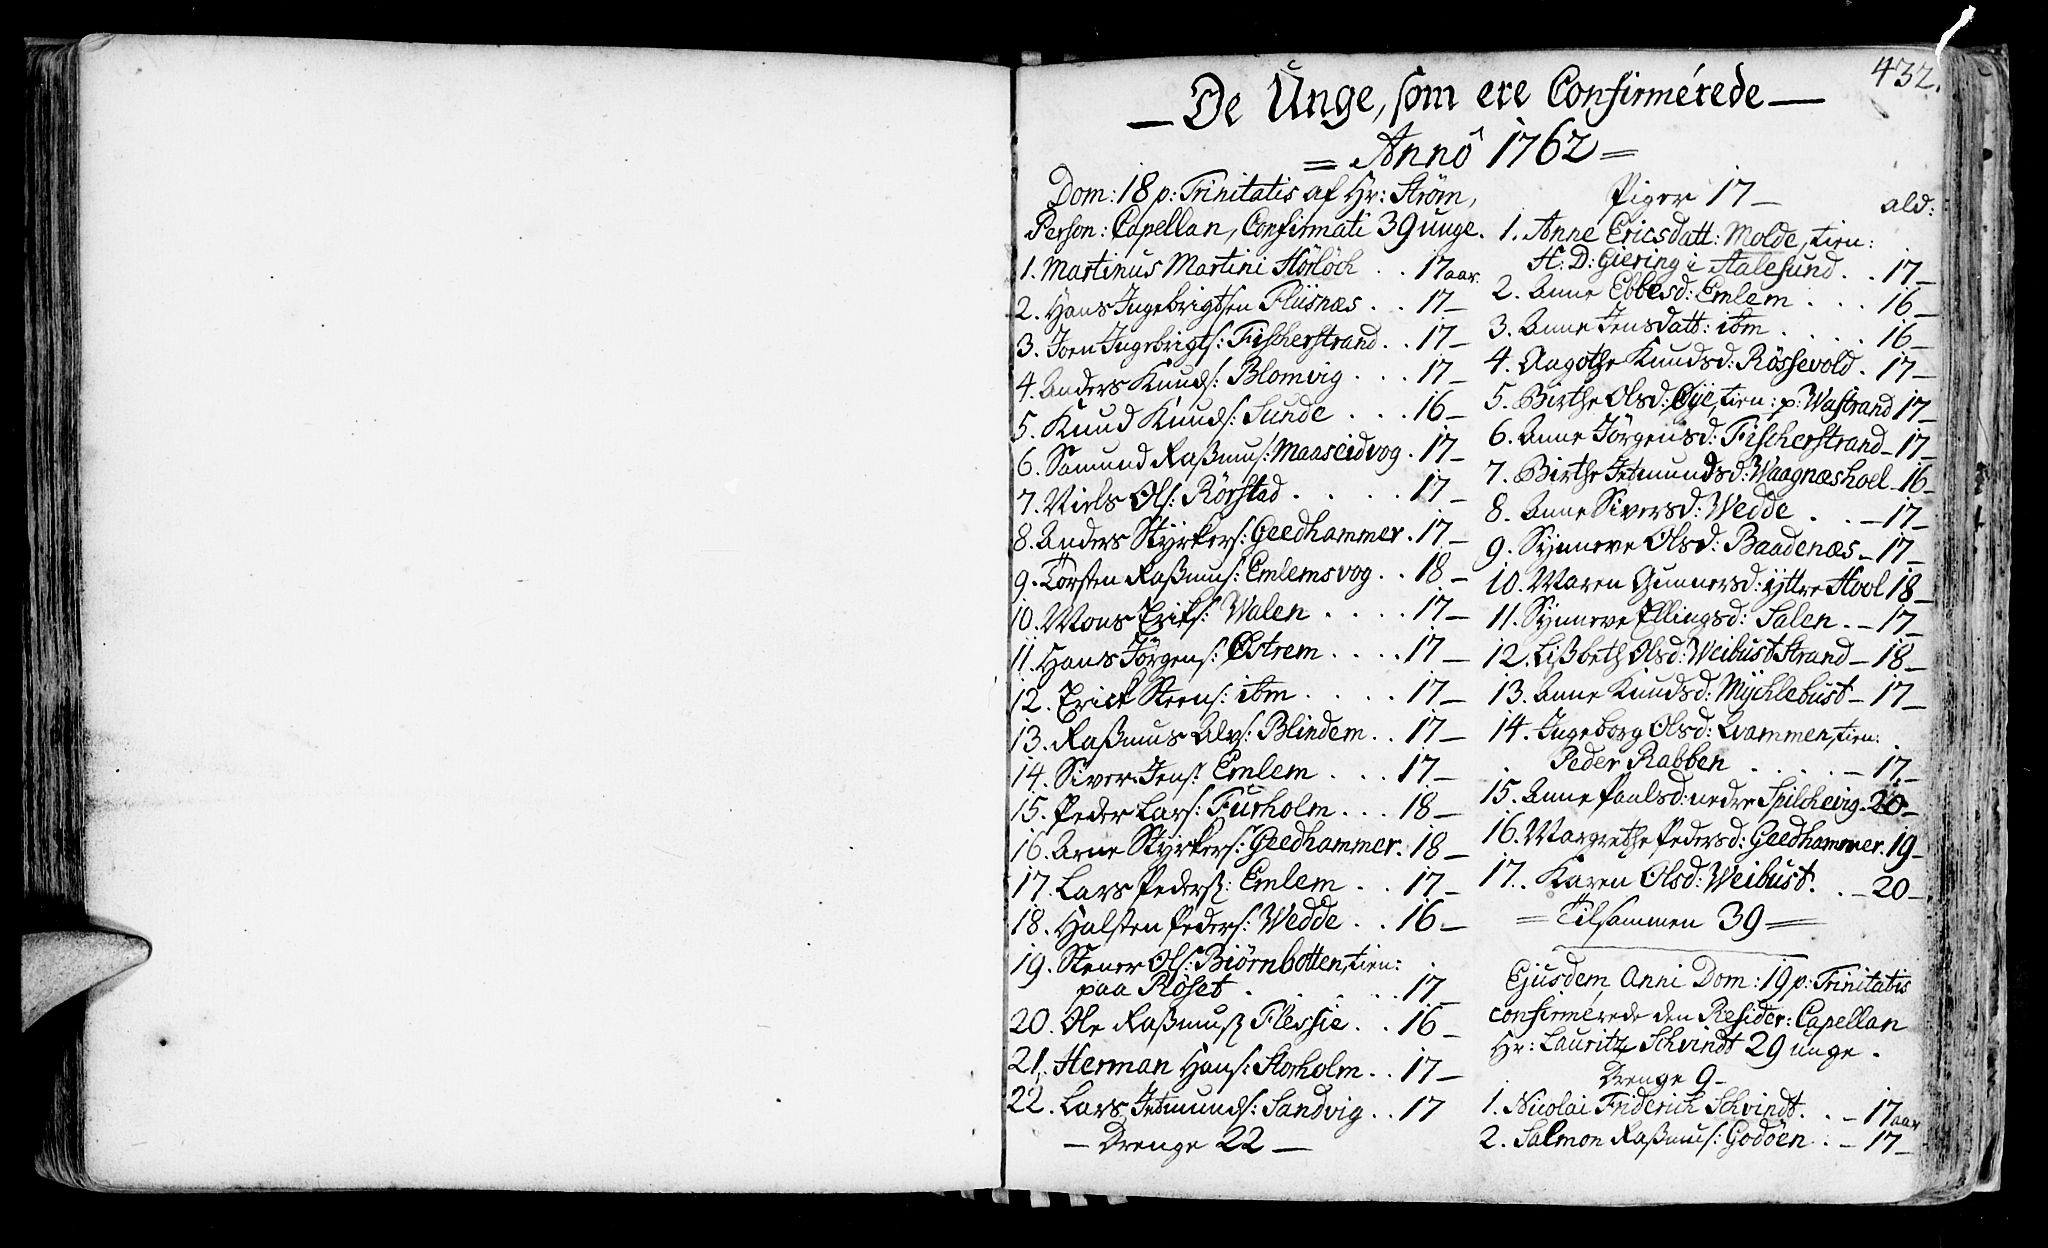 432.
— De Unge, som ere Confirmérede —
= Annô 1762 =
Dom: 18 p: Trinitatis af Hr: Strøm,
Person: Capellan, Confirmati 39 unge.
1. Martinus Martini Hörlöch . . 17 aar.
2. Hans Ingebrigtsen Fliisnæs . . 17 —
3. Joen Ingebrigts: Fischerstrand . . 17 —
4. Anders Knuds: Blomvig . . . 17 —
5. Knud Knuds: Sunde . . . 16 —
6. Samund Raßmus: Maaseidvog . 17 —
7. Niels Ols: Rörstad . . . . . 17 —
8. Anders Styrkers: Geedhammer . 17 —
9. Torsten Raßmus: Emlemsvog . . 18 —
10. Mons Eriks: Walen . . . . 17 —
11. Hans Jörgens: Østrem . . . . 17 —
12. Erick Steens: ibm . . . . . 17 —
13. Raßmus Alvs: Blindem . . 17 —
14. Siver Jens: Emlem . . . 17 —
15. Peder Lars: Furholm . . . 18 —
16. Arne Styrkers: Geedhammer . 18 —
17. Lars Peders: Emlem . . 17 —
18. Halsten Peders: Wedde . . 16 —
19. Stener Ols: Biörnbotten, tien:
paa Röset . . . . . 17 —
20. Ole Raßmus: Flessie . . 16 —
21. Herman Hans: Storholm . . 17 —
22. Lars Jetmunds: Sandvig . . 17
— Drenge 22 —
Piger 17 — ald:
1. Anne Ericsdatt: Molde, tien:
H: D: Giering i Aalesund . . 17 —
2. Anne Ebbesd: Emlem . . . 16 —
3. Anne Jensdatt: ibm . . . . 16 —
4. Aagothe Knudsd: Rössevold . 17 —
5. Birthe Olsd: Øÿe, tien: p: Wastrand 17 —
6. Anne Jörgensd: Fischerstrand — 17 —
7. Birthe Jetmundsd: Waagnæshoel — 16 —
8. Anne Siversd: Wedde . . — 17 —
9. Synneve Olsd: Baadenæs — 17 —
10. Maren Gunnersd: ÿttre Hool 18 —
11. Synneve Ellingsd: Salen . — 17 —
12. Lißbeth Olsd: Weibust Strand — 18 —
13. Anne Knudsd: Mychlebust — 17 —
14. Ingeborg Olsd: Qvammen, tien:
Peder Rabben . . . . . — 17 —
15. Anne Paulsd: nedre Spilchevig — 20 —
16. Margrethe Pedersd: Geedhammer . 19 —
17. Karen Olsd: Weibust . . — 20 —
= Tilsammen 39 =
Ejusdem Anni Dom: 19 p: Trinitatis
confirmérede den Resider: Capellan
Hr: Lauritz Schvindt 29 unge .
Drenge 9 —
1. Nicolai Friderich Schvindt . . — 17 aar
2. Salmon Raßmus: Godöen . . — 17 —